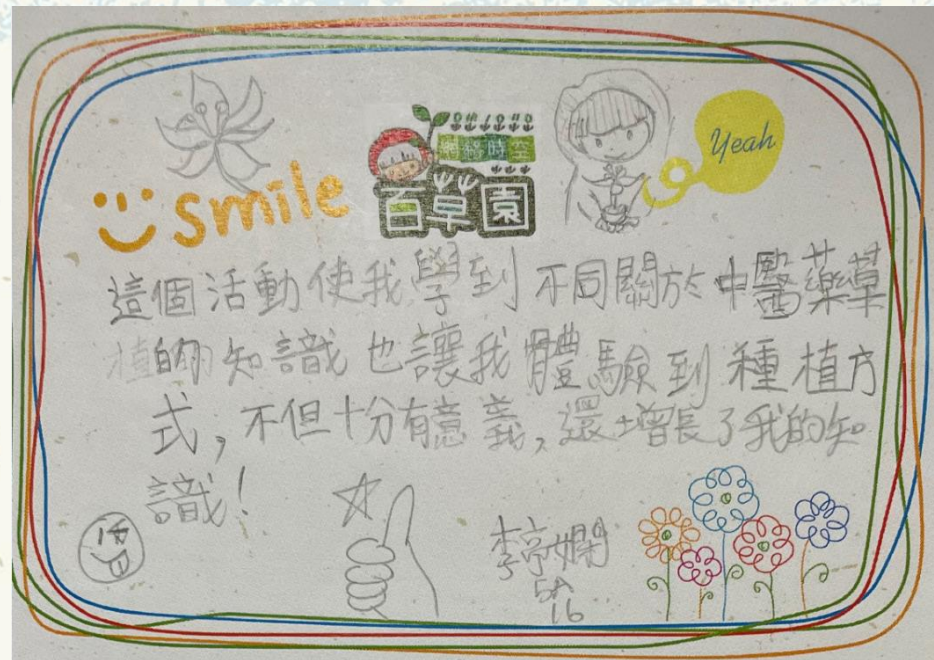 smile
Yeah
跨越時空
百草園
這個活動使我學到不同關於中醫藥草
植的知識也讓我體驗到種植方
式，不但十分有意義，還增長了我的知
識！
李亭嫻
5A
16